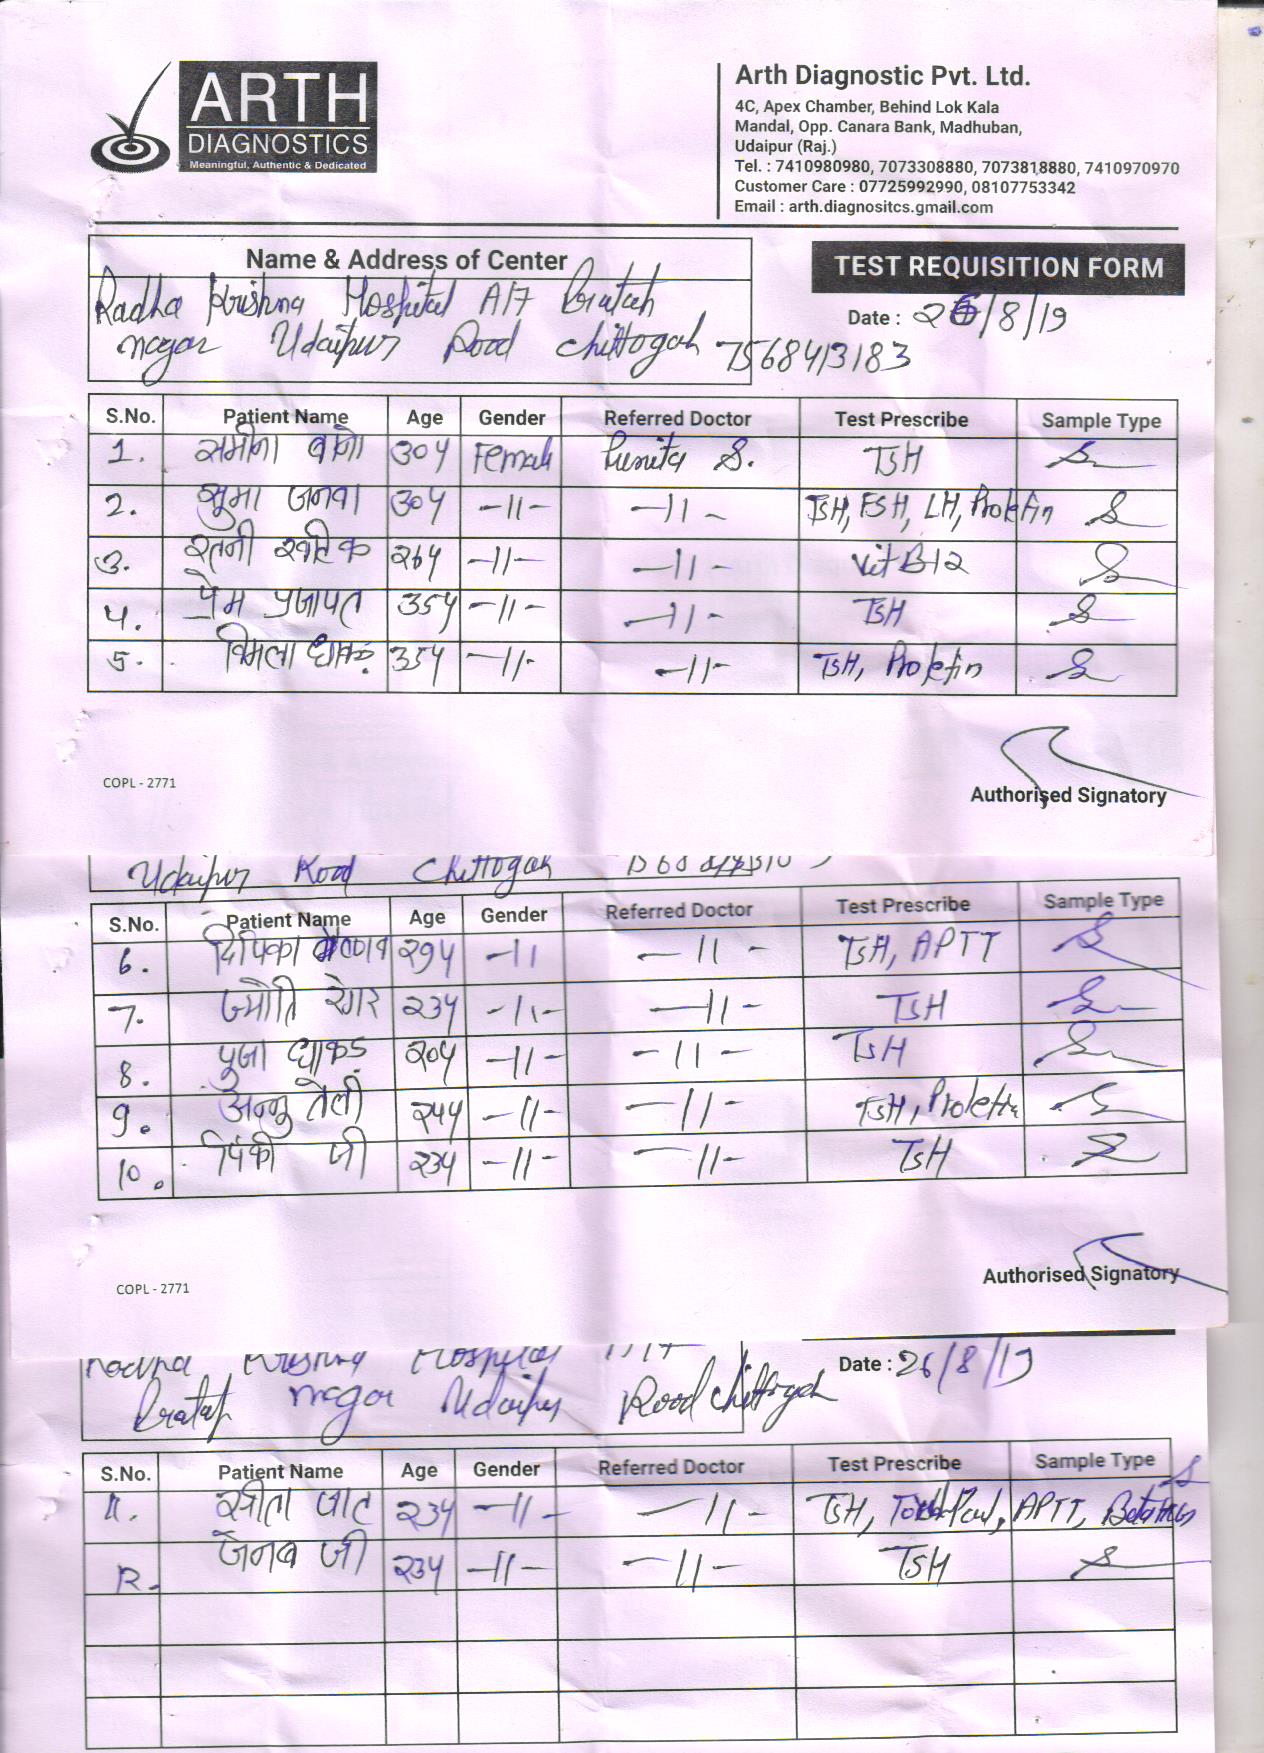 ARTH
DIAGNOSTICS
Meaningful, Authentic & Dedicated
Arth Diagnostic Pvt. Ltd.
4C, Apex Chamber, Behind Lok Kala
Mandal, Opp. Canara Bank, Madhuban,
Udaipur (Raj.)
Tel. : 7410980980, 7073308880, 7073818880, 7410970970
Customer Care : 07725992990, 08107753342
Email : arth.diagnositcs.gmail.com
Name & Address of Center
TEST REQUISITION FORM
Radha Krishna Hospital A17 Pratap
Date : 26/8/19
nagar Udaipur Road Chittogah 7568413183
S.No. Patient Name Age Gender Referred Doctor Test Prescribe Sample Type
1. समीना बानो 30y Female Punita S. TSH S
2. सुमा जनवा 30y -11- -11- TSH, FSH, LH, Prolektin S
3. रतनी खटीक २६y -11- -11- Vit B12 S
4. प्रेम प्रजापत 35y -11- -11- TSH S
5. विमला धाकड़ 35y -11- -11- TSH, Prolektin S
COPL - 2771
Authorised Signatory
Udaipur Road Chittogah
S.No. Patient Name Age Gender Referred Doctor Test Prescribe Sample Type
6. दिपिका वैष्णव २९y -11 -11- TSH, APTT S
7. ज्योति रेगर २३y -11- -11- TSH S
8. पूजा धाकड़ २०y -11- -11- TSH S
9. अन्नु तेली २४y -11- -11- TSH, Prolektin S
10. पिंकी जी २३y -11- -11- TSH S
COPL - 2771
Authorised Signatory
Radha Krishna Hospital A17
Date : 26/8/19
Pratap nagar Udaipur Road Chittogah
S.No. Patient Name Age Gender Referred Doctor Test Prescribe Sample Type
11. जाट २३y -11- -11- TSH, APTT, S
12. जैनब जी २३y -11- -11- TSH S